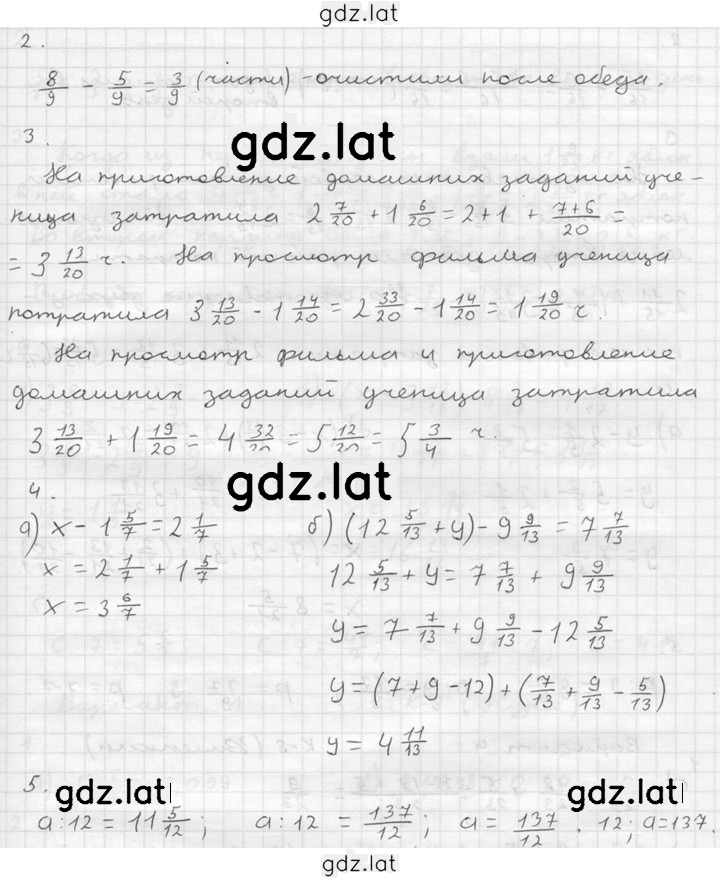 gdz.lat
2.
8/9 - 5/9 = 3/9 (части) - очистили после обеда.
3.
gdz.lat
На приготовление домашних заданий уче-
ница затратила 2 7/20 + 1 6/20 = 2+1 + (7+6)/20 =
= 3 13/20 ч. На просмотр фильма ученица
потратила 3 13/20 - 1 14/20 = 2 33/20 - 1 14/20 = 1 19/20 ч.
На просмотр фильма и приготовление
домашних заданий ученица затратила
3 13/20 + 1 19/20 = 4 32/20 = 5 12/20 = 5 3/4 ч.
gdz.lat
4.
а) x - 1 5/7 = 2 1/7
x = 2 1/7 + 1 5/7
x = 3 6/7
б) (12 5/13 + y) - 9 9/13 = 7 7/13
12 5/13 + y = 7 7/13 + 9 9/13
y = 7 7/13 + 9 9/13 - 12 5/13
y = (7+9-12) + (7/13 + 9/13 - 5/13)
y = 4 11/13
5.
gdz.lat gdz.lat
a:12 = 11 5/12; a:12 = 137/12; a = 137/12 · 12; a = 137.
gdz.lat